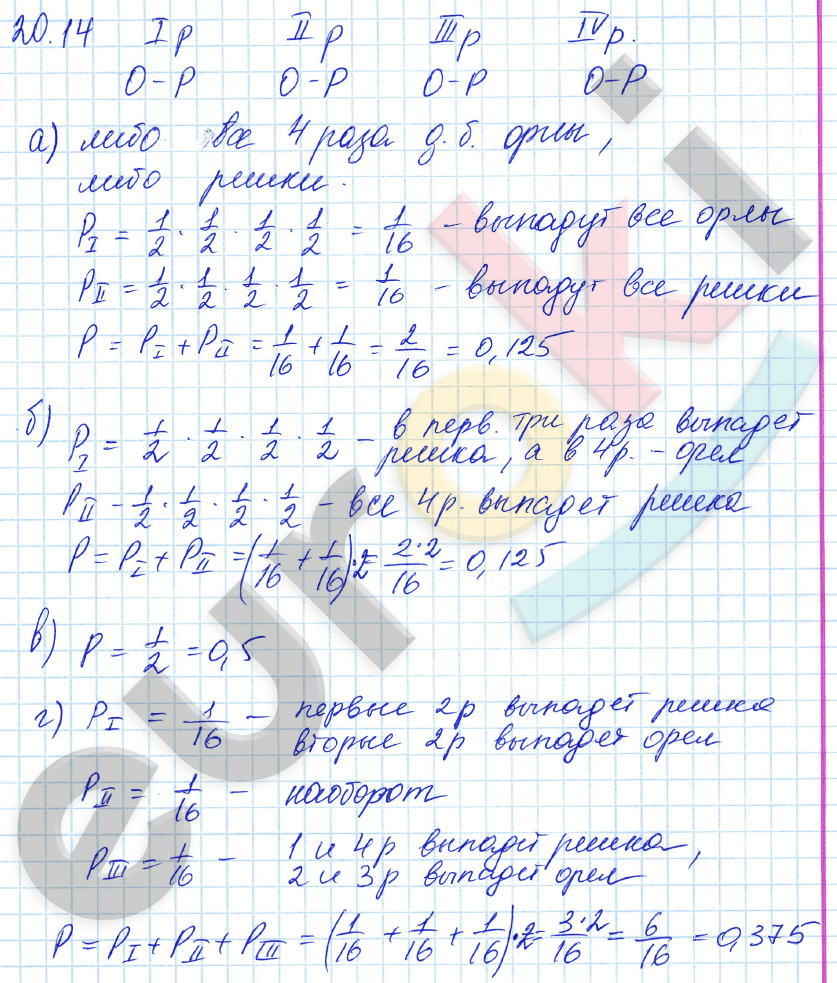 20.14 I р II р III р IV р.
О-Р О-Р О-Р О-Р
а) либо все 4 раза д.б. орлы,
либо решки.
P_I = 1/2 · 1/2 · 1/2 · 1/2 = 1/16 - выпадут все орлы
P_II = 1/2 · 1/2 · 1/2 · 1/2 = 1/16 - выпадут все решки
P = P_I + P_II = 1/16 + 1/16 = 2/16 = 0,125
б) P_I = 1/2 · 1/2 · 1/2 · 1/2 - в перв. три раза выпадет
решка, а в 4р. - орел
P_II - 1/2 · 1/2 · 1/2 · 1/2 - все 4р. выпадет решка
P = P_I + P_II = (1/16 + 1/16)·2 = 2·2/16 = 0,125
в) P = 1/2 = 0,5
г) P_I = 1/16 - первые 2р выпадет решка
вторые 2р выпадет орел
P_II = 1/16 - наоборот
P_III = 1/16 - 1 и 4р выпадет решка,
2 и 3р выпадет орел
P = P_I + P_II + P_III = (1/16 + 1/16 + 1/16)·2 = 3·2/16 = 6/16 = 0,375
euroki